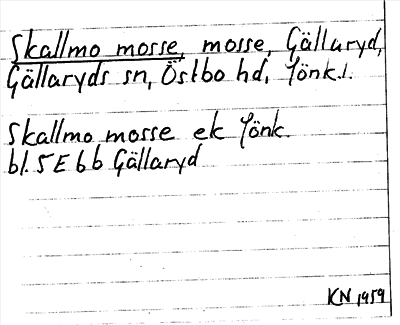 Skallmo mosse, mosse, Gällaryd,
Gällaryds sn, Östbo hd, Jönk.l.
Skallmo mosse ek Jönk.
bl. 5E6b Gällaryd
KN 1959